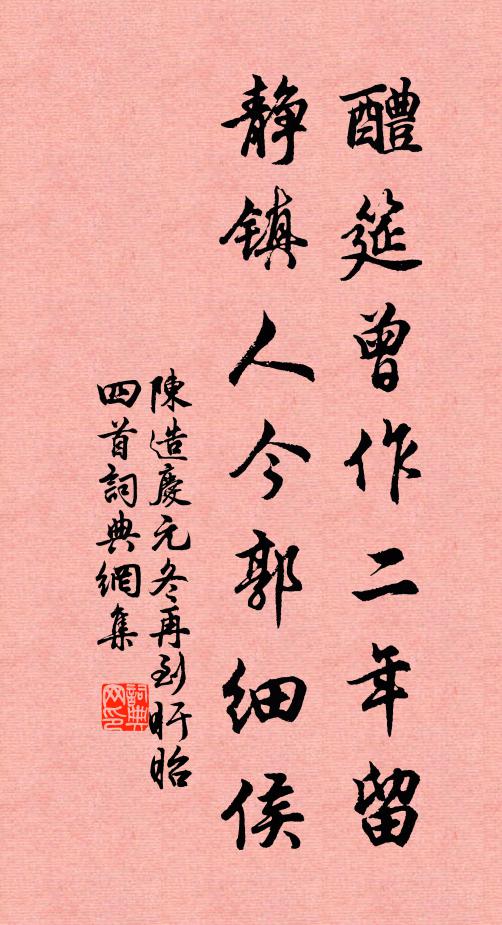 醴筵曾作二年留
静镇人今郭细侯
陳造慶元冬再到盱眙
四首詞典網集
詞典网印